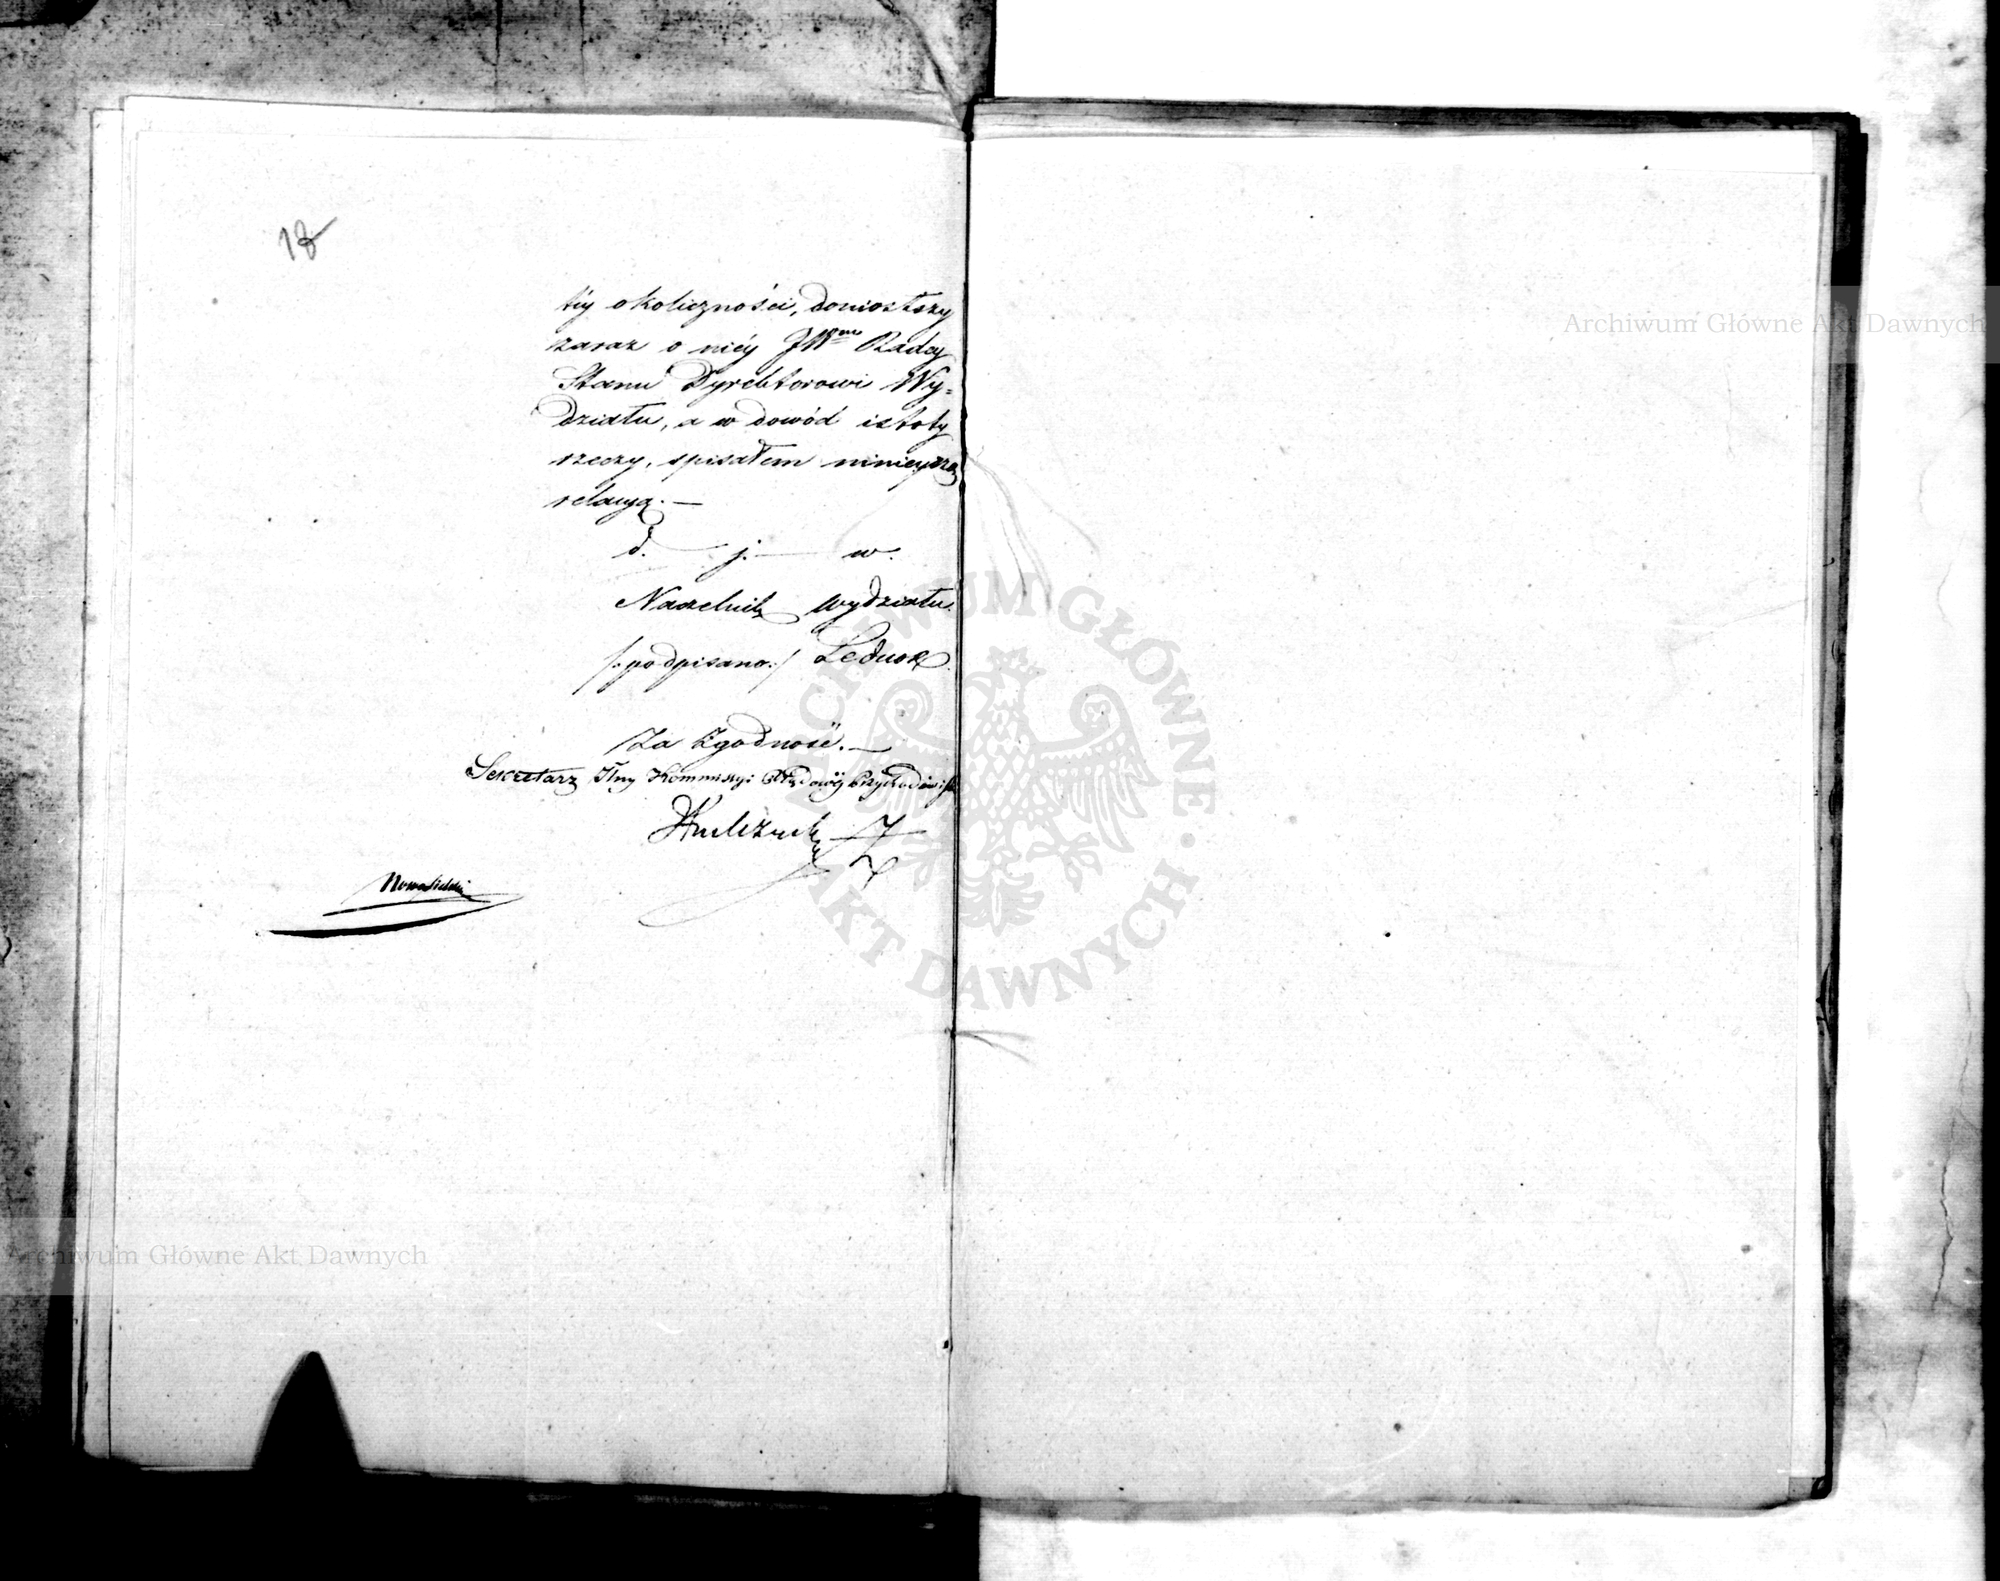 18
téy okoliczności, doniosłszy
zaraz o niéy JWmu Radcy
Stanu Dyrektorowi Wy=
działu, a w dowód istoty
rzeczy, spisałem ninieyszą
relacyą. —
d. — j. — w.
Naczelnik Wydziału.
/:podpisano:/ Leduor.
Za Zgodność. —
Sekretarz Jlny Kommissyi Rządowéy Przychodów i Sk
Kulczycki
Nowosielski
Archiwum Główne Akt Dawnych
ARCHIWUM GŁÓWNE AKT DAWNYCH
Archiwum Główne Akt Dawnych